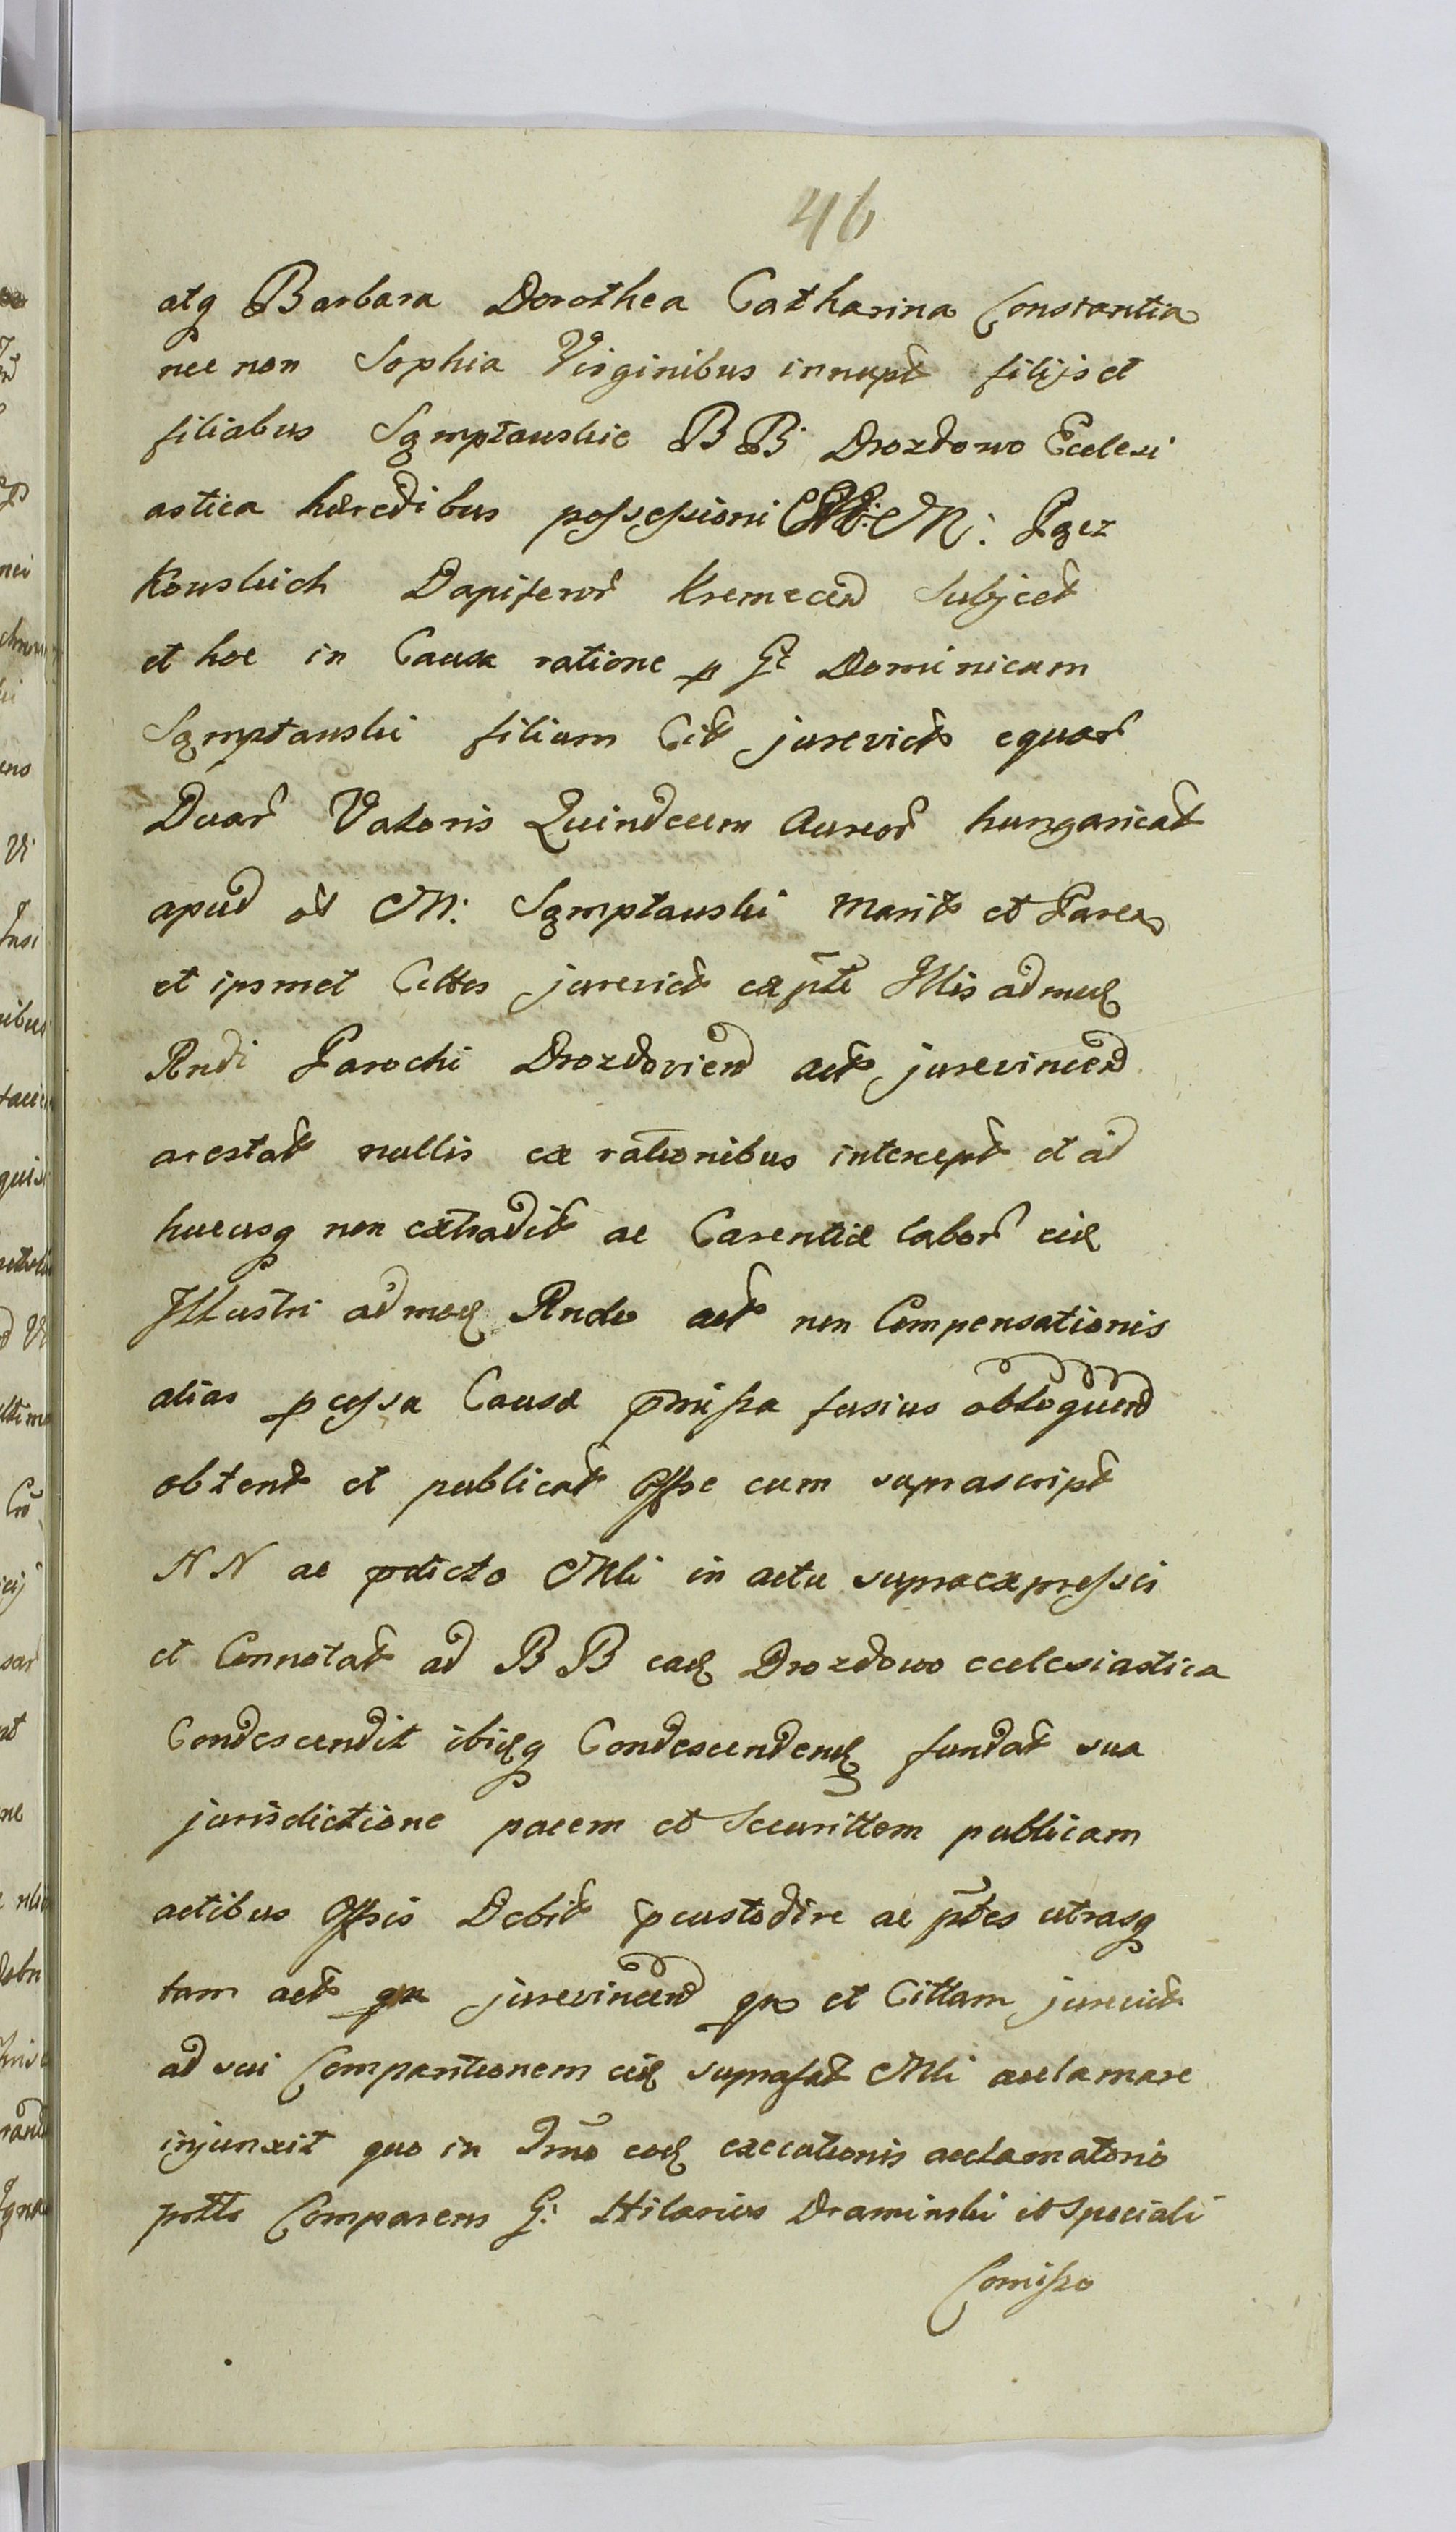 46
atq Barbara Dorothea Catharina Constantia
nec non Sophia Virginibus innupt filijs et
filiabus Sąmptauskie BB Drozdowo Ecclesi
astica hæredibus possessioni MM: Pąez
kowskich Dapiferor Kremecen Subject
et hoc in Causa ratione p G Dominicum
Sąmptauski filium Cit jurevict equar
Duar Valoris Quindecem Aureor hungaricat
apud M: Sąmptauski Marit et Paren
et ipsmet Cittos jurevict ex pte Illis admuẽ
Rndi Parochi Drozdovien act jurevincen
arestat nullis ex rationibus intercept et ad
hucusq non extradit ac Carentiæ labor
Illustri admoẽ Rndo act non Compensationis
alias pcessa Causæ pmissa fusius obloquen
obtent et publicat Offse cum suprascript
NN ac pdicto Mli in actu supraexpressis
et Connotat ad BB Drozdowo ecclesiastica
Condescendit ibidq Condescenden fundat sua
jurisdictione pacem et Securittem publicam
actibus Offsis Debit pcustodire ac ptes utrasq
tam act jurevincen et Cittam jurevict
ad sui Comparitionem suprafat Mli acclamare
injunxit quo in Tmo executionis acclamatorio
pstto Comparens G: Hilarius Draminski et Speciali
Comisso